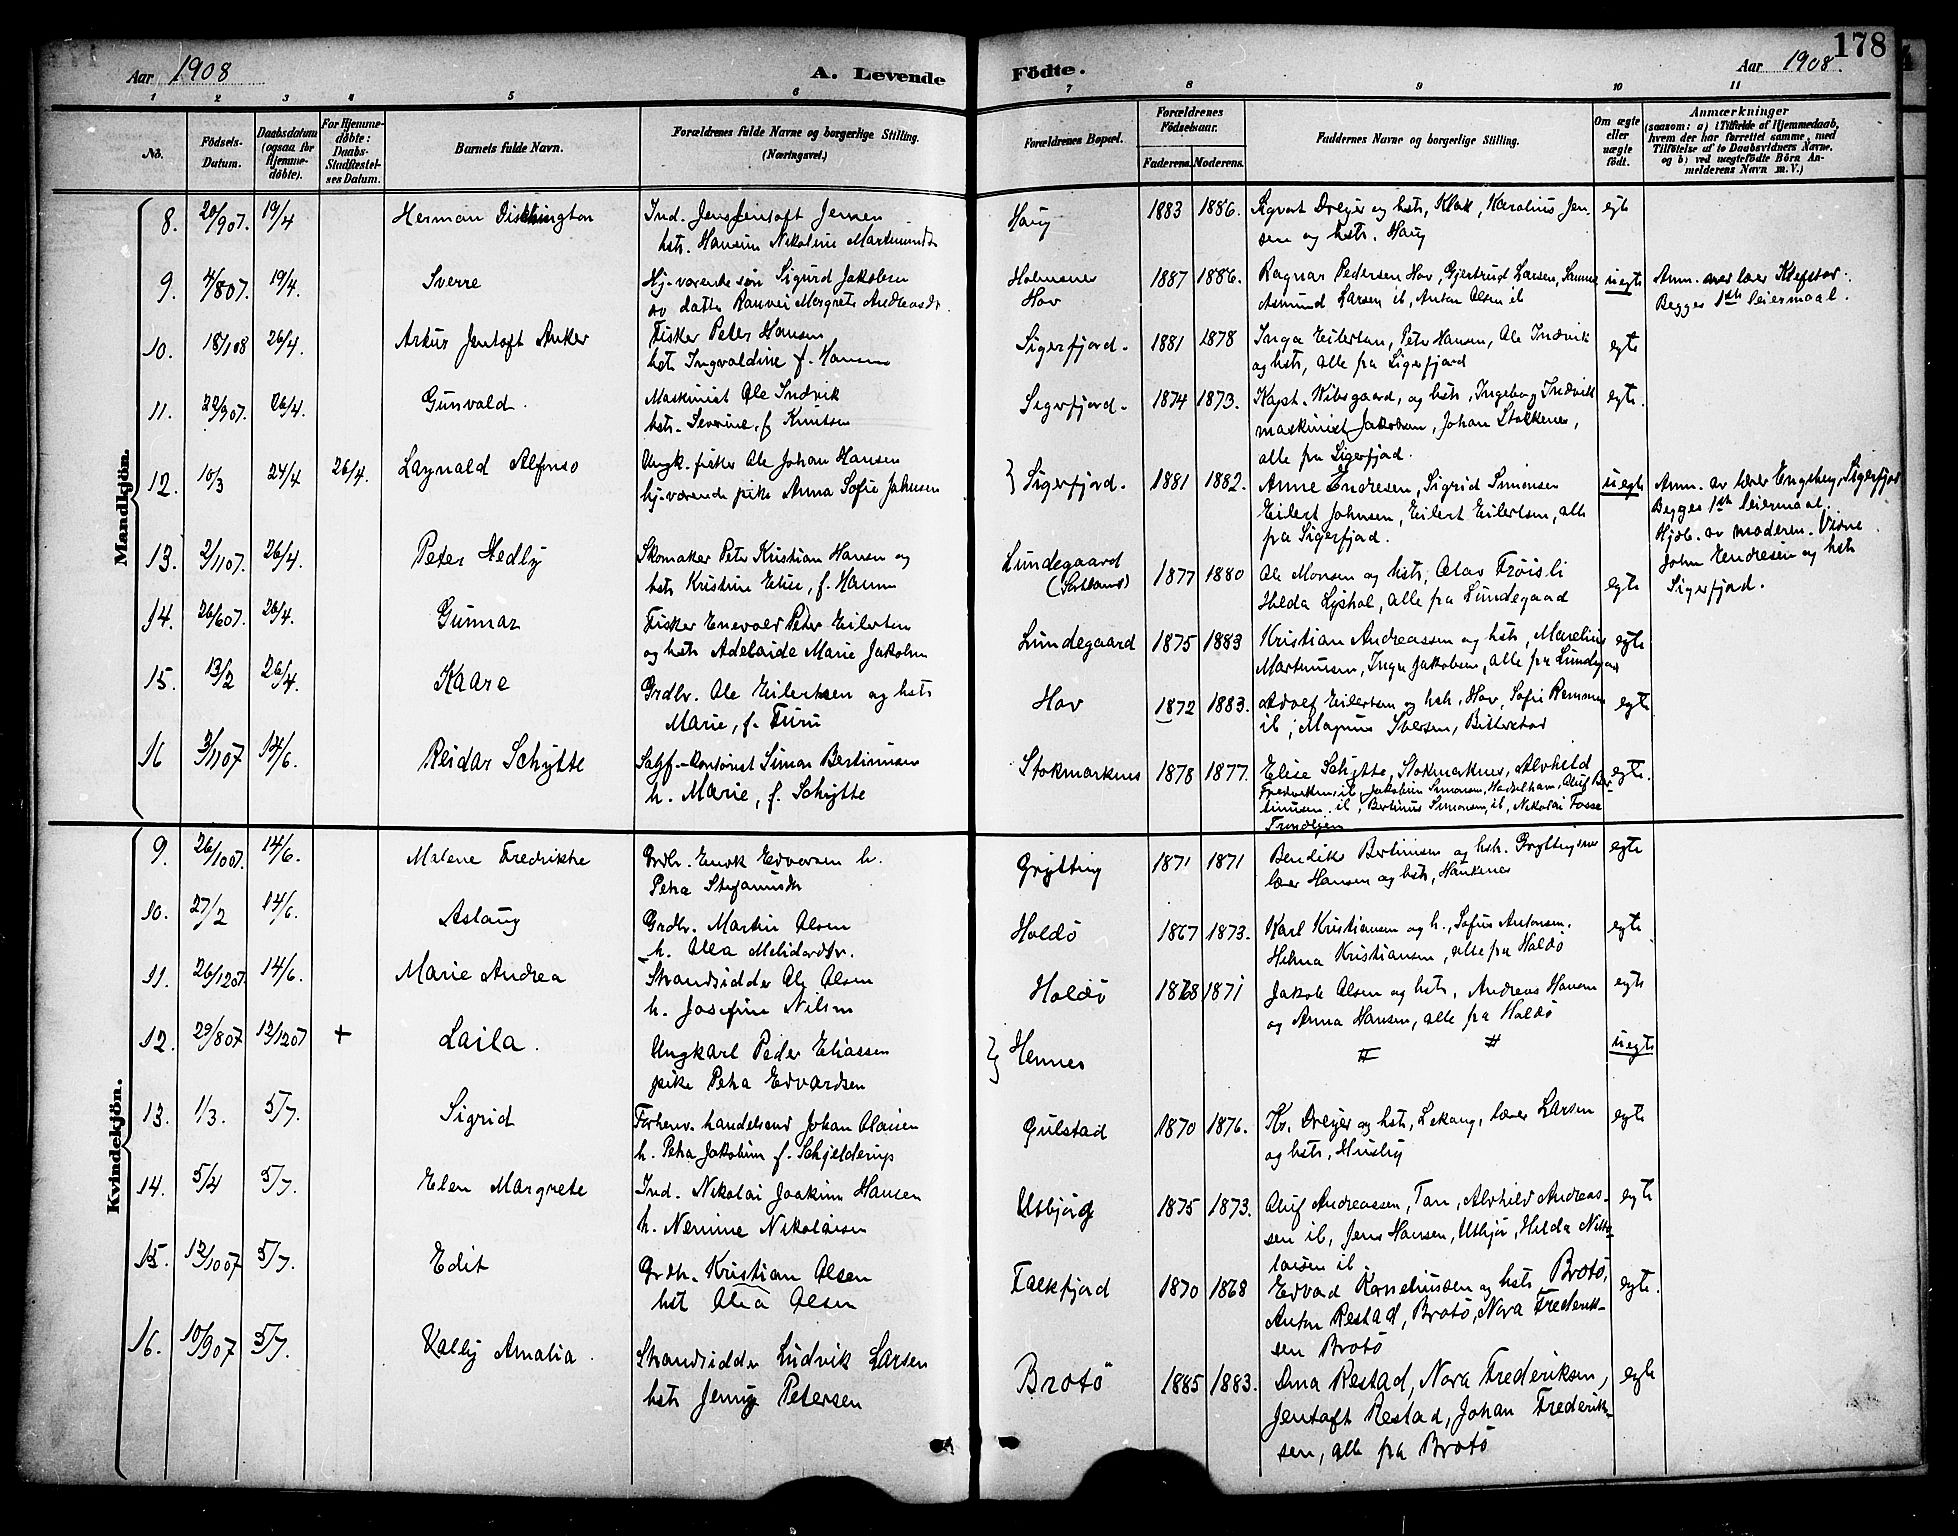 178
Aar 1908
A. Levende
Födte.
Aar 1908.
1 2 3 4 5 6 7 8 9 10 11
No.
Födsels-
Datum.
Daabsdatum
(ogsaa för
Hjemme-
döbte).
For Hjemme-
döbte:
Daabs-
Stadfæstel-
ses Datum.
Barnets fulde Navn.
Forældrenes fulde Navne og borgerlige Stilling.
(Næringsvei.)
Forældrenes Bopæl.
Forældrenes
Födselsaar.
Faderens. Moderens.
Faddernes Navne og borgerlige Stilling.
Om ægte
eller
uægte
født.
Anmærkninger
(saasom: a) i Tilfælde af Hjemmedaab,
hvem der har forrettet samme, med
Tilföielse af to Daabsvidners Navne.
og b) ved uægtefödte Börn An-
melderens Navn m. V.)
Mandkjön.
8. 20/907. 19/4 Herman Dishington
Ind. Jens Jentoft Jensen
hstr. Hansine Nikoline Martinusdtr
Haug 1883 1886.
Sigvart Dreyer og hstr, Klak, Karolius Jen-
sen og hstr. Haug
egte
9. 4/807. 19/4. Sverre
Hj-værende søn Sigurd Jakobsen
av datter Ranvei Margrete Andreasdr.
Holmsnes
Hov
1887 1886.
Ragnar Pedersen Hov, Gjertrud Larsen,
Asmund Larsen ib, Anton Olsen ib
uegte
Anm. av lærer Klefstad.
Begges 1ste leiermaal.
10. 18/108 26/4. Artur Jentoft Anker
Fisker Peter Hansen
hstr Ingvaldine f. Hansen
Sigerfjord. 1881 1878
Inga Eilertsen, Peter Hansen, Ole Indvik
og hstr, alle fra Sigerfjord
egte
11. 22/907. 26/4. Gunvald.
Maskinist Ole Indvik
hstr. Severine, f. Knutsen
Sigerfjord. 1874 1873.
Kapt. Wibegaard, og hstr, Ingeborg Indvik
maskinist Jakobsen, Johan Stokkenes,
alle fra Sigerfjord.
egte.
12. 10/3 24/4 26/4. Laynald Alfonso
Ungk. fisker Ole Johan Hansen
hj-værende pike Anna Sofie Johnsen
Sigerfjord. 1881 1882.
Anne Endresen, Sigrid Simonsen
Eilert Johnsen, Eilert Eilertsen, alle
fra Sigerfjord.
uegte
Anm. av lærer Engsberg, Sigerfjord
Begges 1ste leiermaal.
Hjdb. av moderen. Vidne
John Endresen og hstr
Sigerfjord.
13. 2/1107. 26/4. Peter Hedly
Skomaker Peter Kristian Hansen og
hstr Kristine Elise, f. Hansen
Lundegaard
(Sortland)
1877 1880
Ole Monsen og hstr, Olav Frøisli
Hilda Lyshol, alle fra Lundegaard
egte
14. 26/607. 26/4. Gunnar
Fisker Enevold Peter Eilertsen
og hstr Adelaide Marie Jakobsen
Lundegaard 1875 1883
Kristian Andreassen og hstr, Marelius
Martinusen, Inga Jakobsen, alle fra Lundegaard
egte
15. 13/2 26/4. Kaare
Grdbr. Ole Eilertsen og hstr
Marie, f. Furu
Hov 1872 1883.
Adolf Eilertsen og hstr, Hov, Sofie Remmen
ib, Magnus Iversen, Bitterstad
egte
16 3/1107 14/6. Reidar Schytte
Simon Bertinusen
h. Marie, f. Schytte
Stokmarknes 1878 1877.
Elise Schytte, Stokmarknes, Alvhild
Fredriksen, ib, Jakobine Simonsen, Hadselhavn, Oluf Ber-
tinusen, ib, Bertinus Simonsen, ib, Nikolai Fosse
Trondhjem
egte.
Kvindekjön.
9. 26/1007. 14/6. Malene Fredrikke
Grdbr. Enok Edvarsen h.
Petra Stefanusdtr
Grytting 1871 1871
Bendik Bertinsen og hstr. Gryttingsnes
lærer Hansen og hstr, Haukenes
egte
10. 27/2 14/6. Aslaug
Grdbr. Martin Olsen
h. Olea Melidordtr.
Holdö 1867 1873.
Karl Kristiansen og h., Sofus Antonsen.
Helma Kristiansen, alle fra Holdö
egte.
11. 26/1207. 14/6. Marie Andrea
Strandsidder Ole Olsen
h. Josefine Nilsen
Holdö 1868 1871
Jakob Olsen og hstr, Andreas Hansen
og Anna Hansen, alle fra Holdö
egte
12. 29/807 12/1207 + Laila.
Ungkarl Peder Eliassen
pike Petra Edvardsen
Hennes
uegte
13. 1/3. 5/7. Sigrid
Forhenv. handelsmd Johan Olaisen
h. Petra Jakobine f. Schjelderup
Gulstad 1870 1876.
Kr. Dreyer og hstr, Lekang, lærer Larsen
og hstr, Husby
egte
14. 5/4 5/7. Elen Margrete
Ind. Nikolai Joakim Hansen
h. Nennine Nikolaisen
Utbjörg 1875 1873.
Oluf Andreassen, Tan, Alvhild Andreas-
sen ib, Jens Hansen, Utbjør, Hilda Niko-
laisen ib.
egte
15. 12/1007 5/7. Edit
Grdbr. Kristian Olsen
hst Olea Olsen
Falkfjord 1870 1868
Edvard Korneliussen og hstr, Brotö,
Anton Restad, Brotö, Nora Frederik-
sen Brotö
egte.
16. 10/907 5/7. Vally Amalia.
Strandsidder Ludvik Larsen
hstr Jenny Petersen
Brotö 1885 1883.
Dina Restad, Nora Frederiksen,
Jentoft Restad, Johan Frederik-
sen, alle fra Brotö
egte